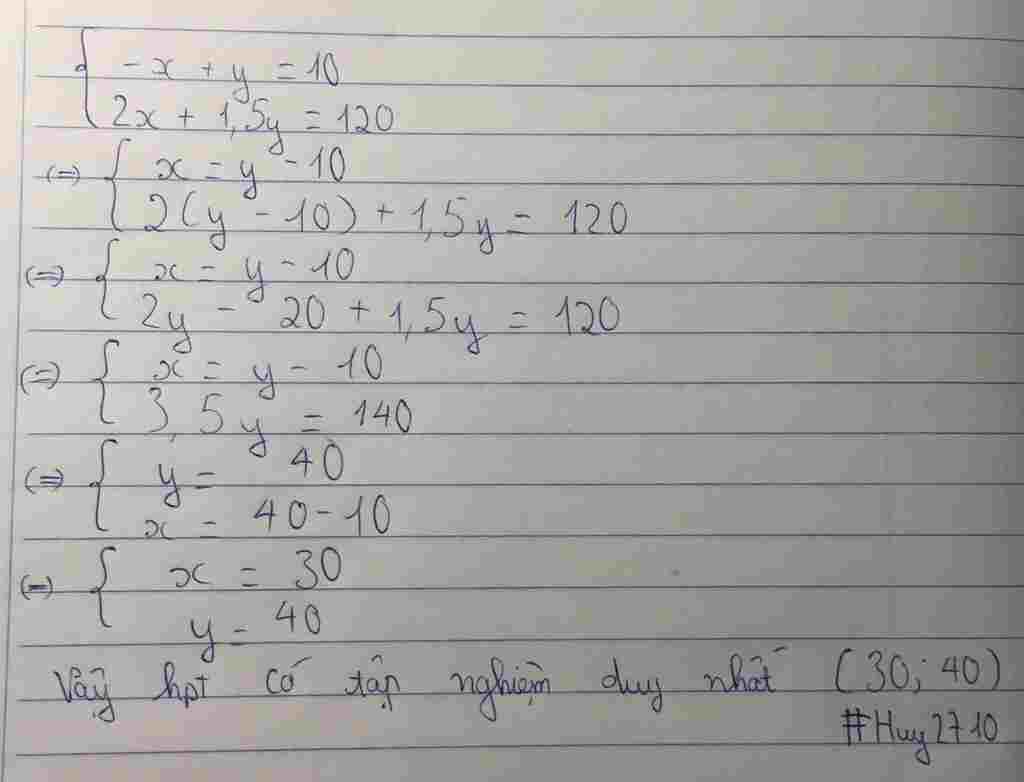 { -x + y = 10
2x + 1,5y = 120
(=) { x = y - 10
2(y - 10) + 1,5y = 120
(=) { x = y - 10
2y - 20 + 1,5y = 120
(=) { x = y - 10
3,5y = 140
(=) { y = 40
x = 40 - 10
(=) { x = 30
y = 40
Vậy hpt có tập nghiệm duy nhất (30; 40)
#Huy2710